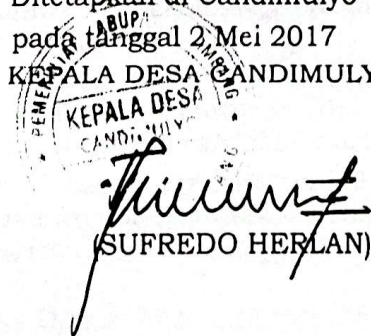 Ditetapkan di Candimulyo
pada tanggal 2 Mei 2017
KEPALA DESA CANDIMULY
KEPALA DESA
(SUFREDO HERLAN)